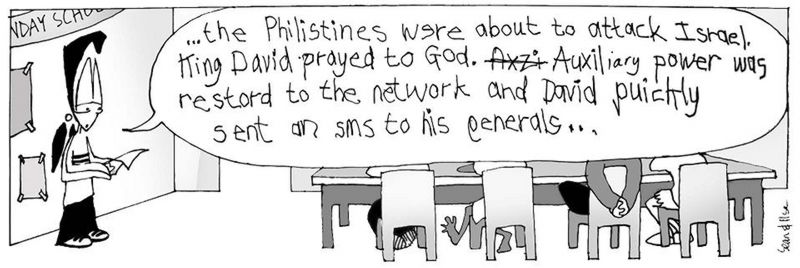 NDAY SCHOO
...the Philistines were about to attack Israel.
King David prayed to God. Axzi Auxiliary power was
restord to the network and David puichly
sent an sms to his penerals...
Sean & Ilse